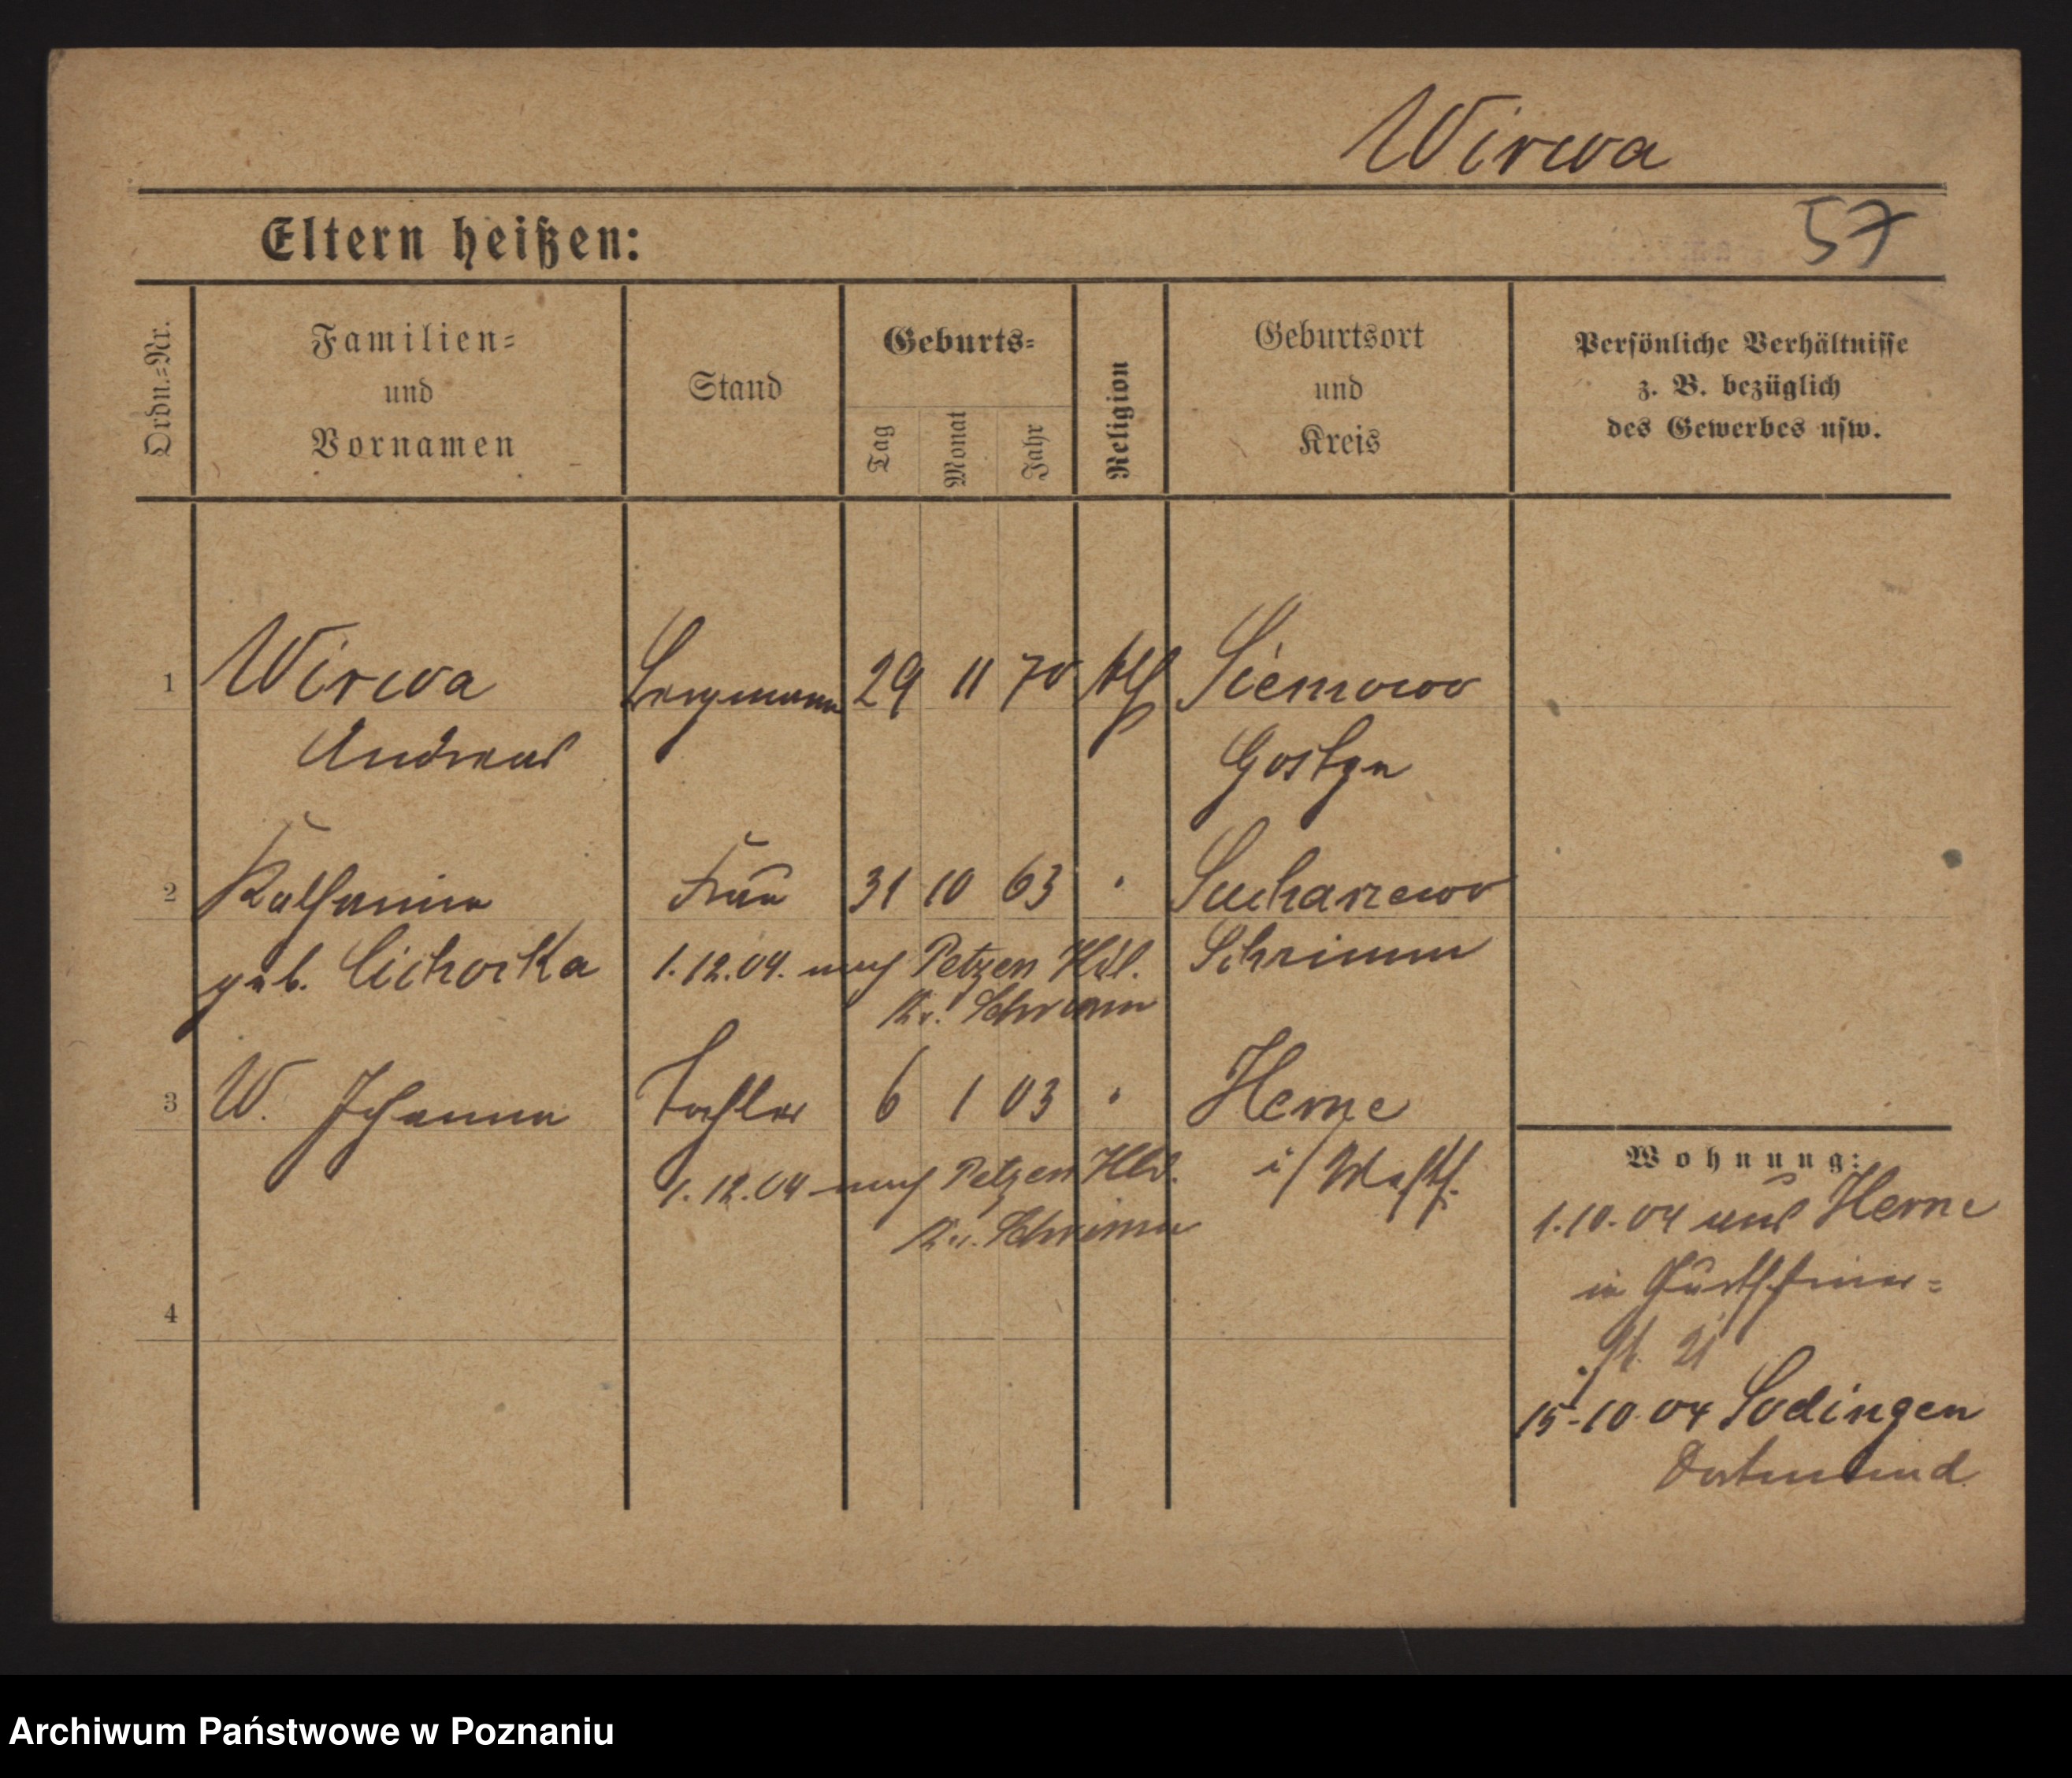 Wirwa
57
Eltern heißen:
Ordn.=Nr.
Familien=
und
Vornamen
Stand
Geburts=
Tag
Monat
Jahr
Religion
Geburtsort
und
Kreis
Persönliche Verhältnisse
z. B. bezüglich
des Gewerbes usw.
1 Wirwa Bergmann 29 11 70 kth Siemowo
Andreas Gostyn
2 Katharina Frau 31 10 63 " Sucharzewo
geb. Cichorka 1.12.04. nach Petzen Hld. Schrimm
Kr. Schrimm
3 W. Johanna Tochter 6 1 03 " Herne
1.12.04 nach Petzen Hld. i/Westf.
Kr. Schrimm
4
Wohnung:
1.10.04 aus Herne
in
St. 21
15-10 04 Sodingen
Dortmund
Archiwum Państwowe w Poznaniu